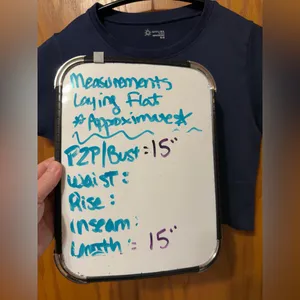 Measurements
Laying Flat
*Approximase*
P2P/Bust: 15"
Waist:
Rise:
Inseam:
Length: 15"